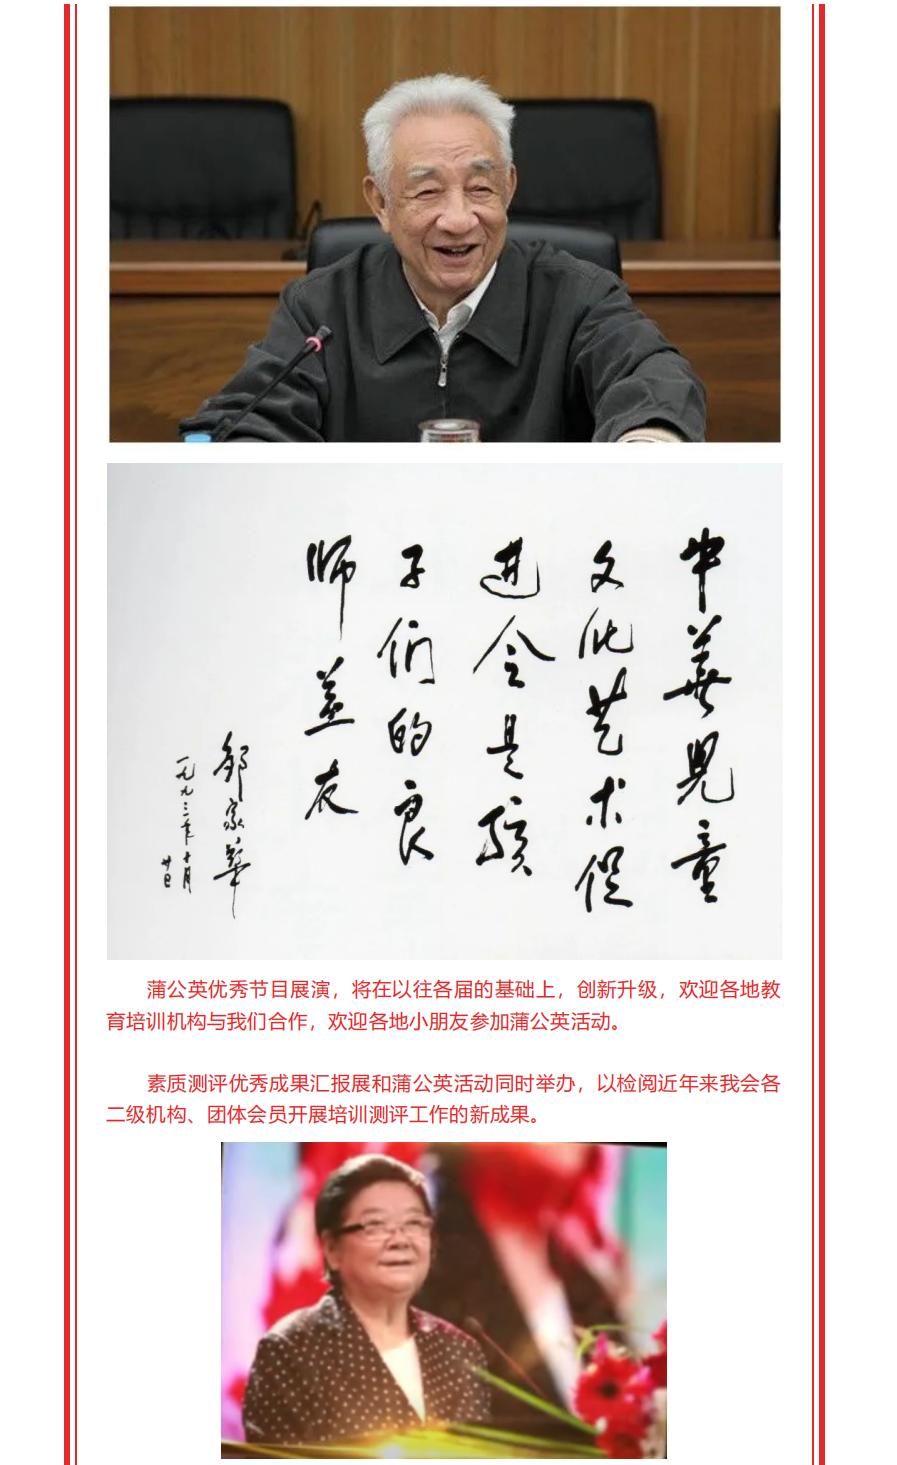 中華児童
文化艺术促
进会是孩
子们的良
师益友
邹家華
一九九三年十月
廿日
蒲公英优秀节目展演，将在以往各届的基础上，创新升级，欢迎各地教
育培训机构与我们合作，欢迎各地小朋友参加蒲公英活动。
素质测评优秀成果汇报展和蒲公英活动同时举办，以检阅近年来我会各
二级机构、团体会员开展培训测评工作的新成果。